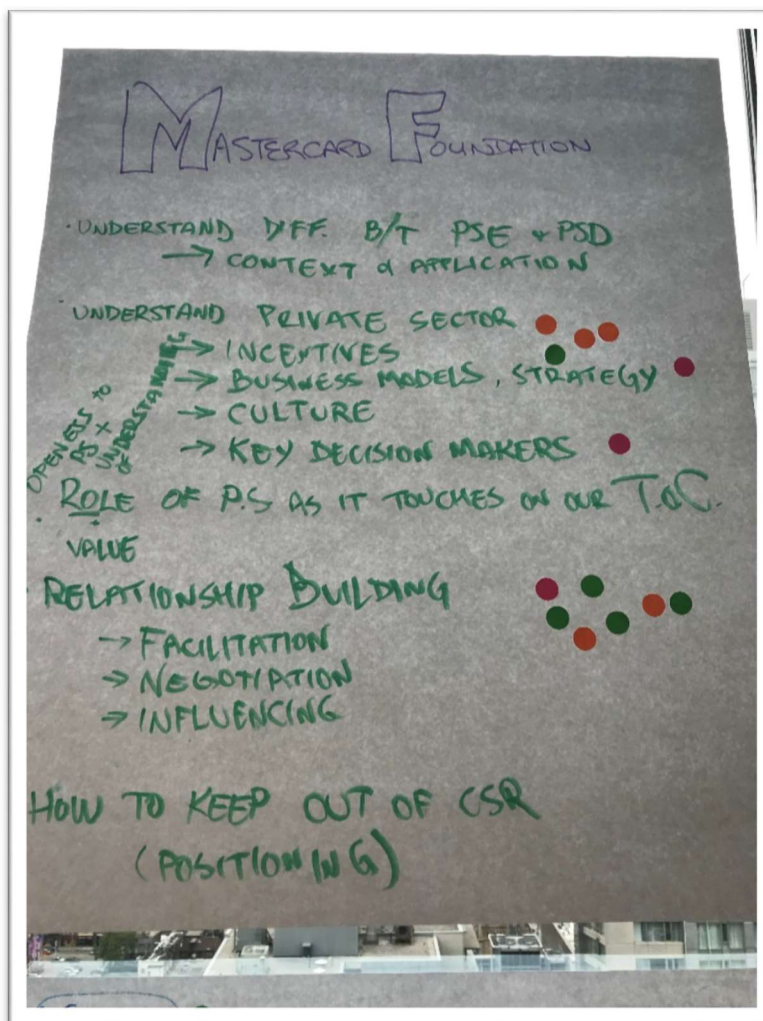 MASTERCARD FOUNDATION
· UNDERSTAND DIFF. B/T PSE + PSD
→ CONTEXT & APPLICATION
· UNDERSTAND PRIVATE SECTOR
→ INCENTIVES
→ BUSINESS MODELS, STRATEGY
→ CULTURE
→ KEY DECISION MAKERS
OPENESS to
PS +
UNDERSTANDING
OF
· ROLE OF P.S AS IT TOUCHES ON OUR T.o.C.
+
VALUE
· RELATIONSHIP BUILDING
→ FACILITATION
→ NEGOTIATION
→ INFLUENCING
HOW TO KEEP OUT OF CSR
(POSITIONING)